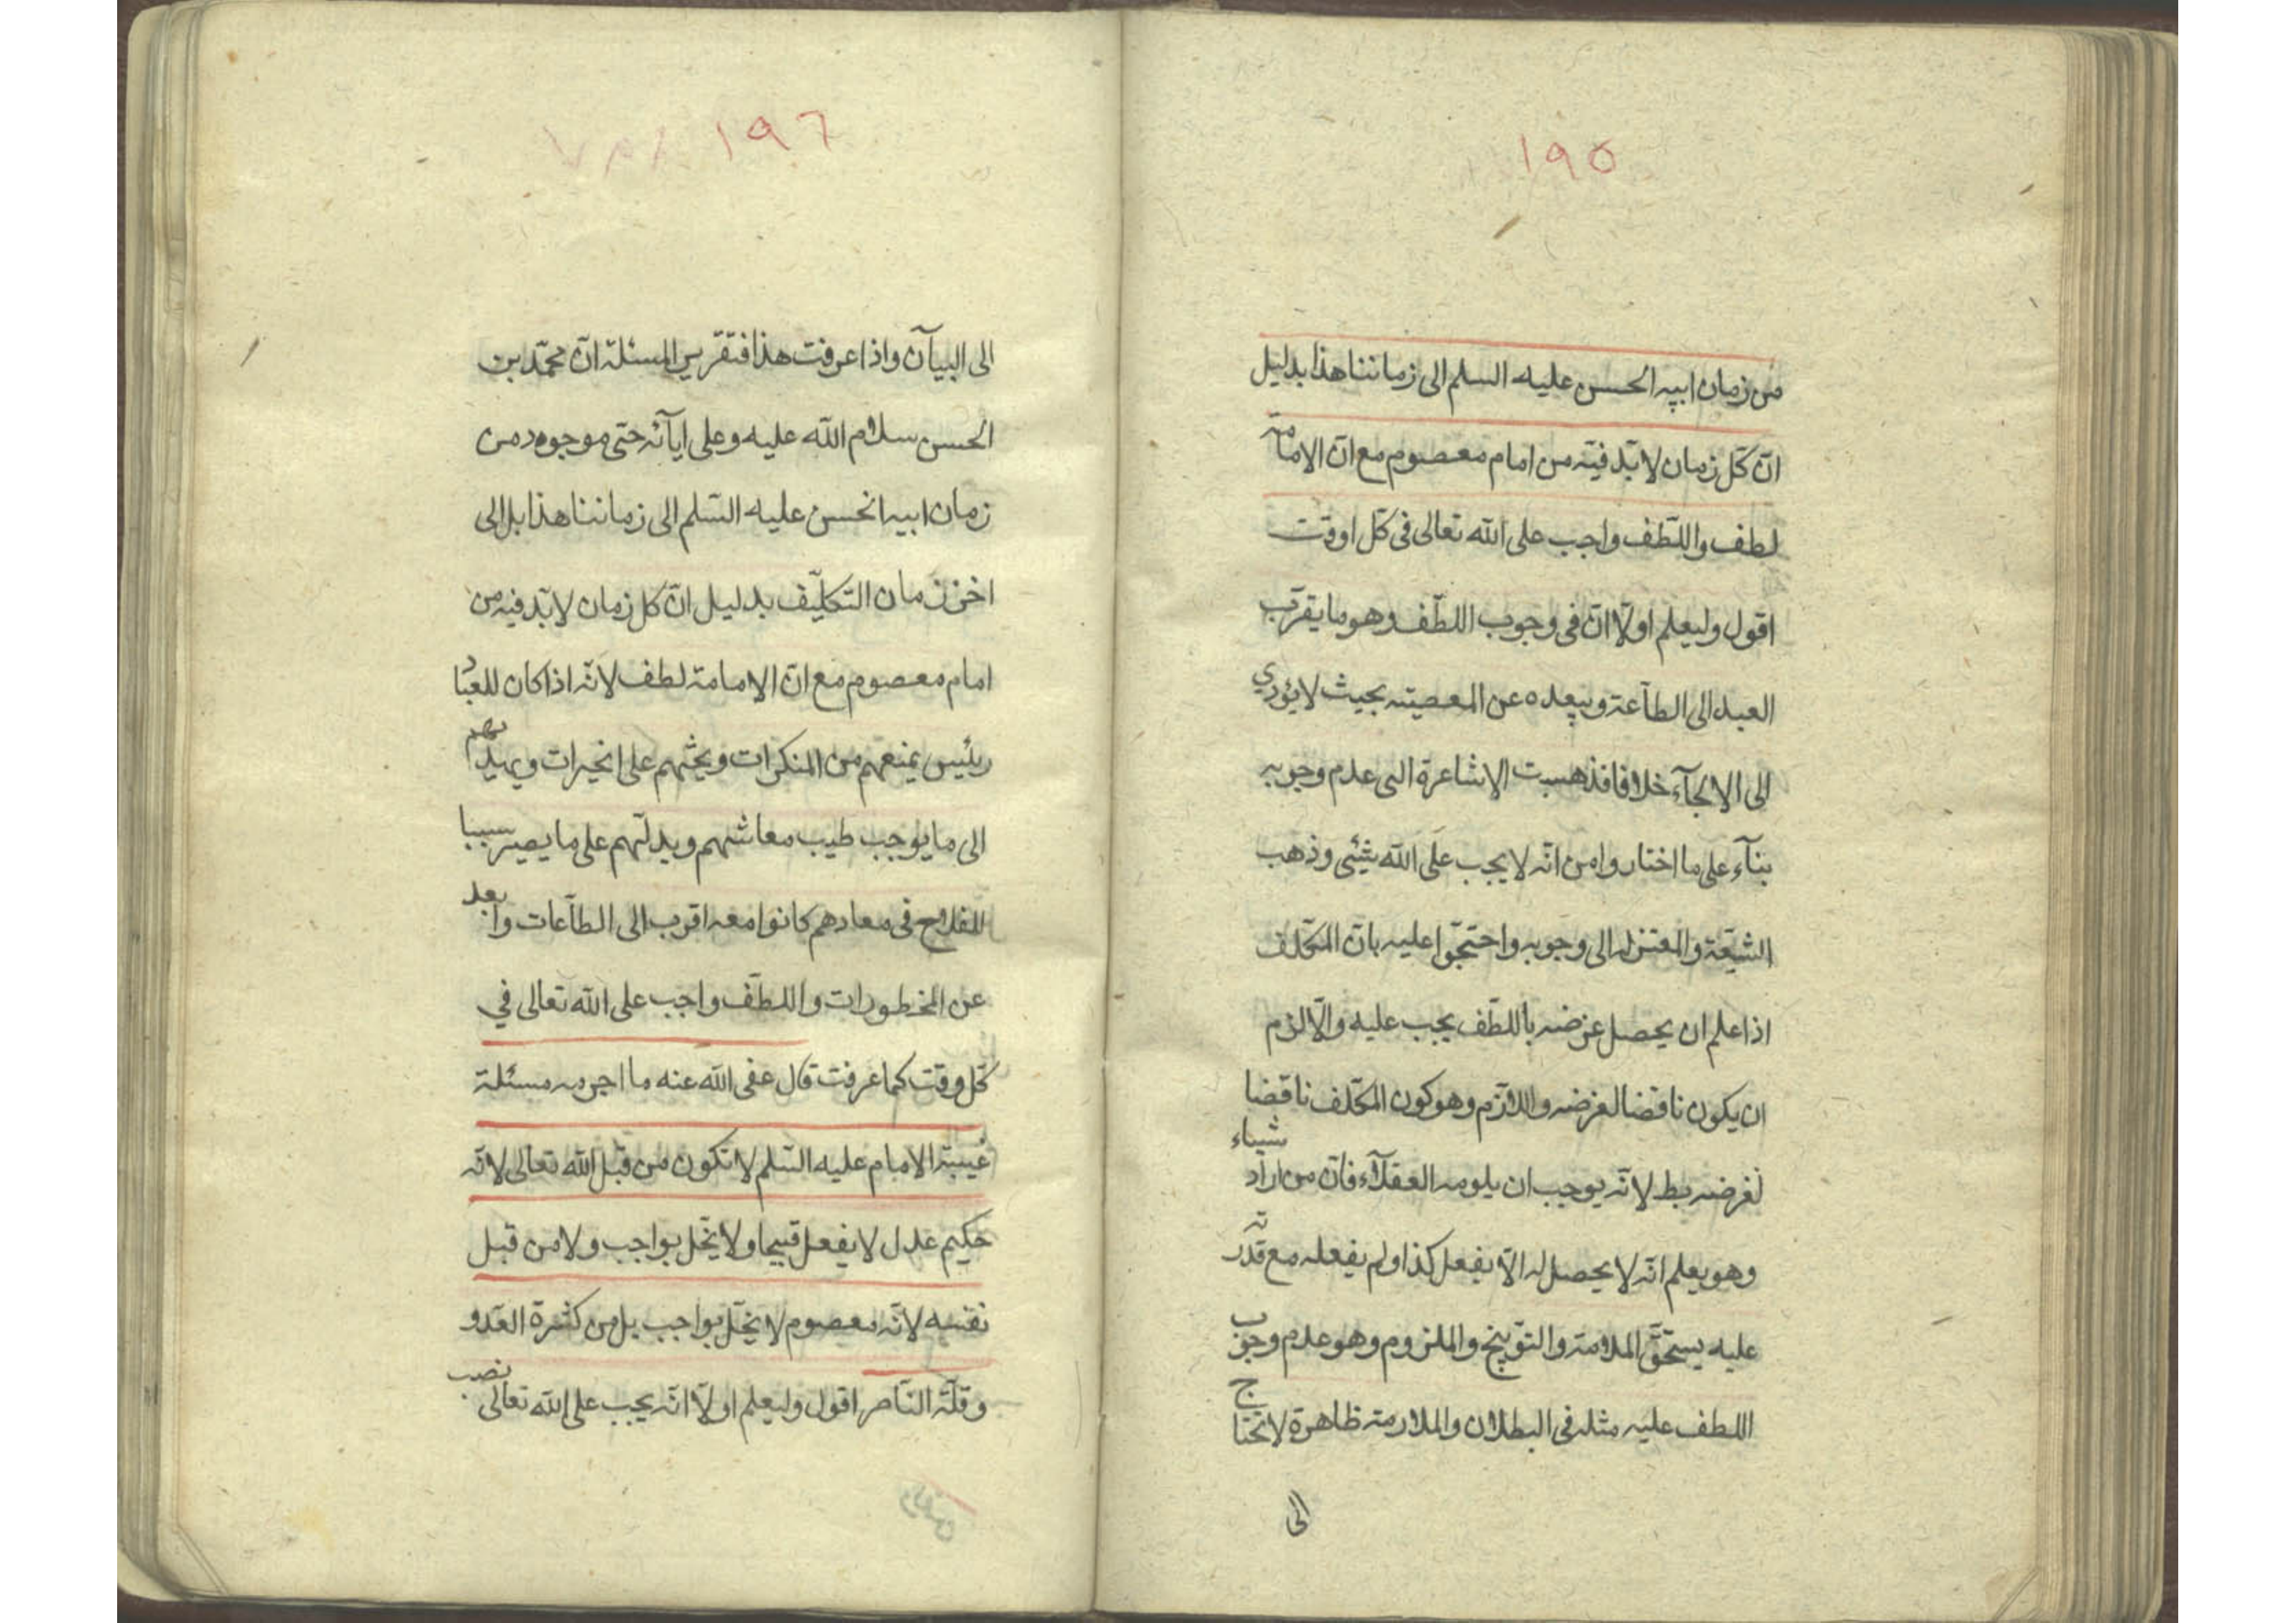 ١٩٥
من زمان ابيه الحسن عليه السلم الى زماننا هذا بدليل
انّ كلّ زمان لا بدّ فيه من امام معصوم مع انّ الامامة
لطف واللّطف واجب على الله تعالى فى كلّ اوقت
اقول وليعلم اولّا انّ فى وجوب اللطّف وهو ما يقرّب
العبد الى الطاّعة ويبعده عن المعصيته بحيث لا يؤدي
الى الالجآء خلافا فذهبت الاشاعرة الى عدم وجوبه
بنآء على ما اختاروا من انّه لا يجب على الله شئى وذهب
الشيّعة والمعتزله الى وجوبه واحتجّوا عليه بانّ المكلّف
اذا علم ان يحصل غرضه باللطّف يجب عليه والّا لزم
ان يكون ناقضا لغرضه واللّازم وهو كون المكلّف ناقضا
لغرضه بط لانّه يوجب ان يلومه العقلآء فانّ من اراد شياء
وهو يعلم انّه لا يحصل له الّا بفعل كذا ولم يفعله مع قدرته
عليه يستحقّ الملامة والتوّبيخ والملزوم وهو عدم وجوب
اللطف عليه مثله فى البطلان والملازمة ظاهرة لا تحتاج
الى
١٩٦
الى البيآن واذا عرفت هذا فتقرير المسئلة انّ محمّد بن
الحسن سلام الله عليه وعلى ابآئه حتى موجود من
زمان ابيه الحسن عليه السّلم الى زماننا هذا بل الى
اخر زمان التكليّف بدليل انّ كل زمان لا بدّ فيه من
امام معصوم مع انّ الامامة لطف لانّه اذا كان للعبّاد
رئيس يمنعهم من المنكرات ويحثهم على الخيرات ويهديهم
الى ما يوجب طيب معاشهم ويدلّهم على ما يصير سببا
للفلاح فى معادهم كانوا معه اقرب الى الطاّعات وابعد
عن المخطورات واللطّف واجب على الله تعالى في
كلّ وقت كما عرفت قال عفى الله عنه ما اجرمه مسئلة
غيبة الامام عليه السّلم لا تكون من قبل الله تعالى لانّه
حكيم عدل لا يفعل قبيحا ولا يخّل بواجب ولا من قبل
نفسه لانّه معصوم لا يخّل بواجب بل من كثرة العّدو
وقلّة الناّصر اقول وليعلم اولّا انّه يجب على الله تعالى نصب